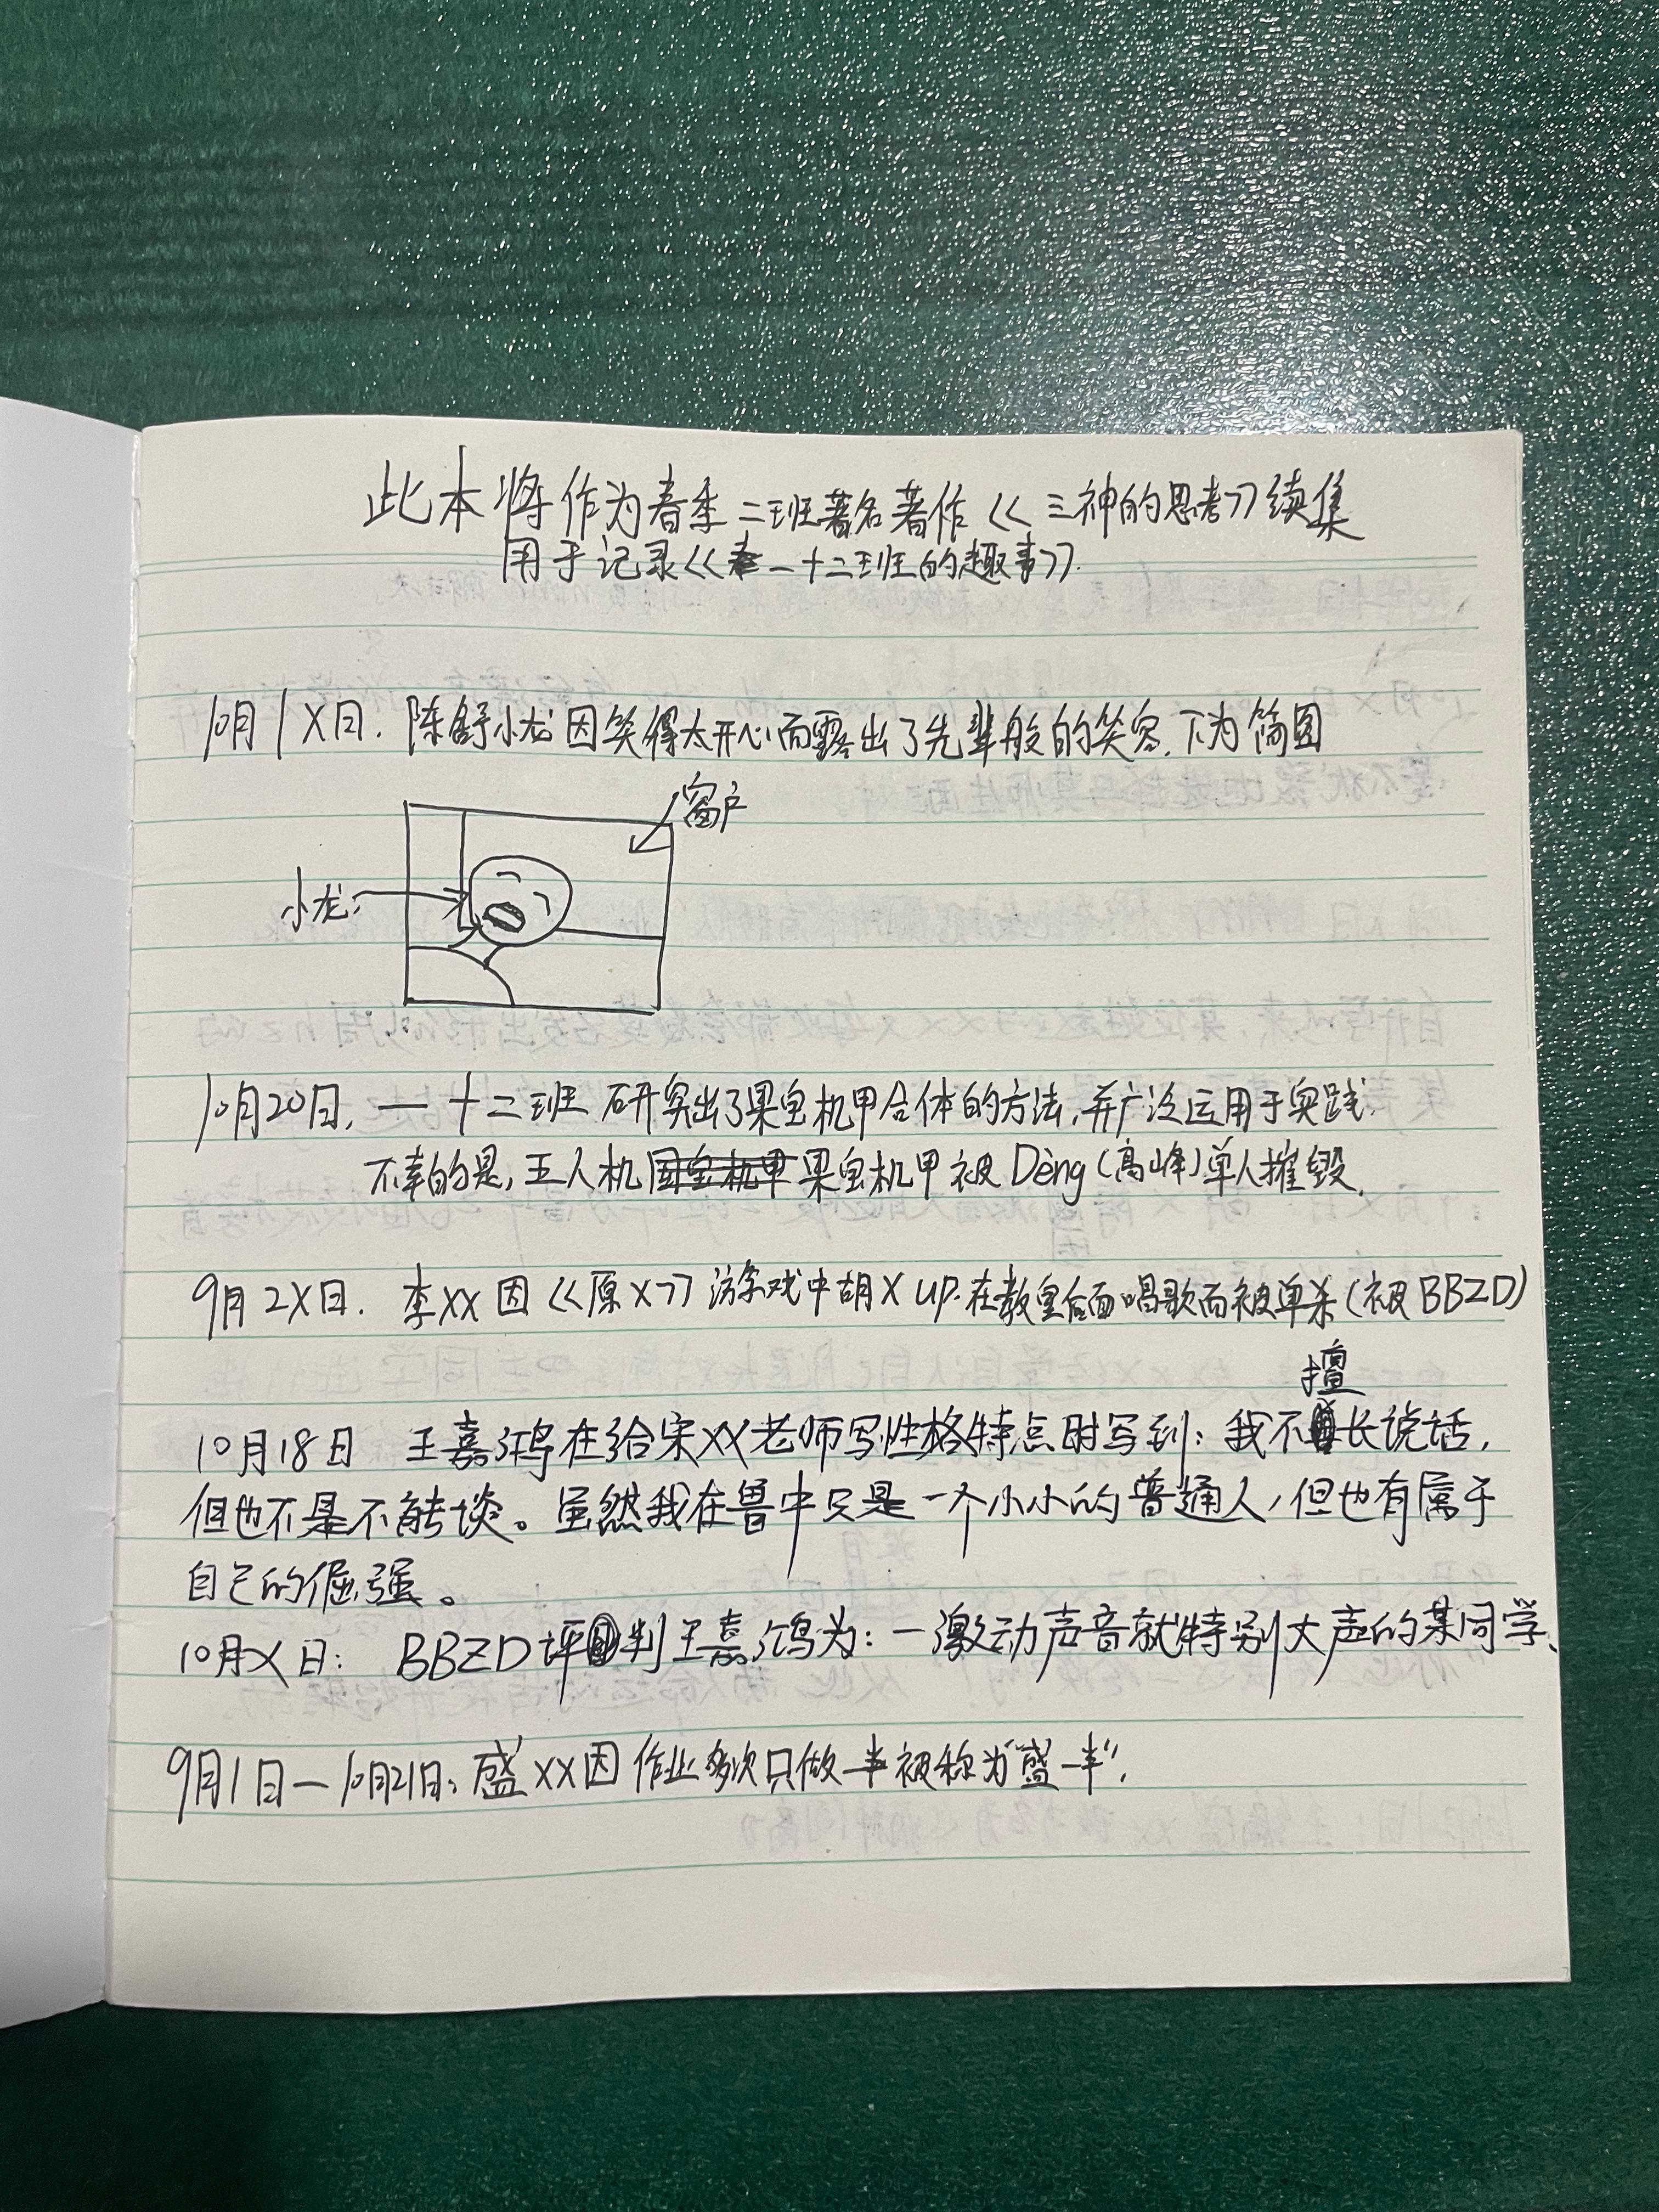 此本将作为春季二班著名著作《三神的思考》续集
用于记录《一十二班的趣事》.
10月1X日. 陈舒小龙因笑得太开心而露出了先辈般的笑容. 下为简图
窗户
小龙
10月20日, 一十二班研究出了果宝机甲合体的方法, 并广泛运用于实践.
不幸的是, 五人机果宝机甲被Dèng(高峰)单人摧毁.
9月2X日. 李XX因《原X》游戏中胡X up. 在教室后面唱歌而被单杀(被BBZD)
擅
10月18日 王嘉鸿在给宋XX老师写性格特点时写到: 我不长说话,
但也不是不能谈。虽然我在鲁中只是一个小小的普通人, 但也有属于
自己的倔强。
10月X日: BBZD评判王嘉鸿为: 一激动声音就特别大声的某同学.
9月1日—10月21日: 盛XX因作业多次只做一半被称为"盛一半".